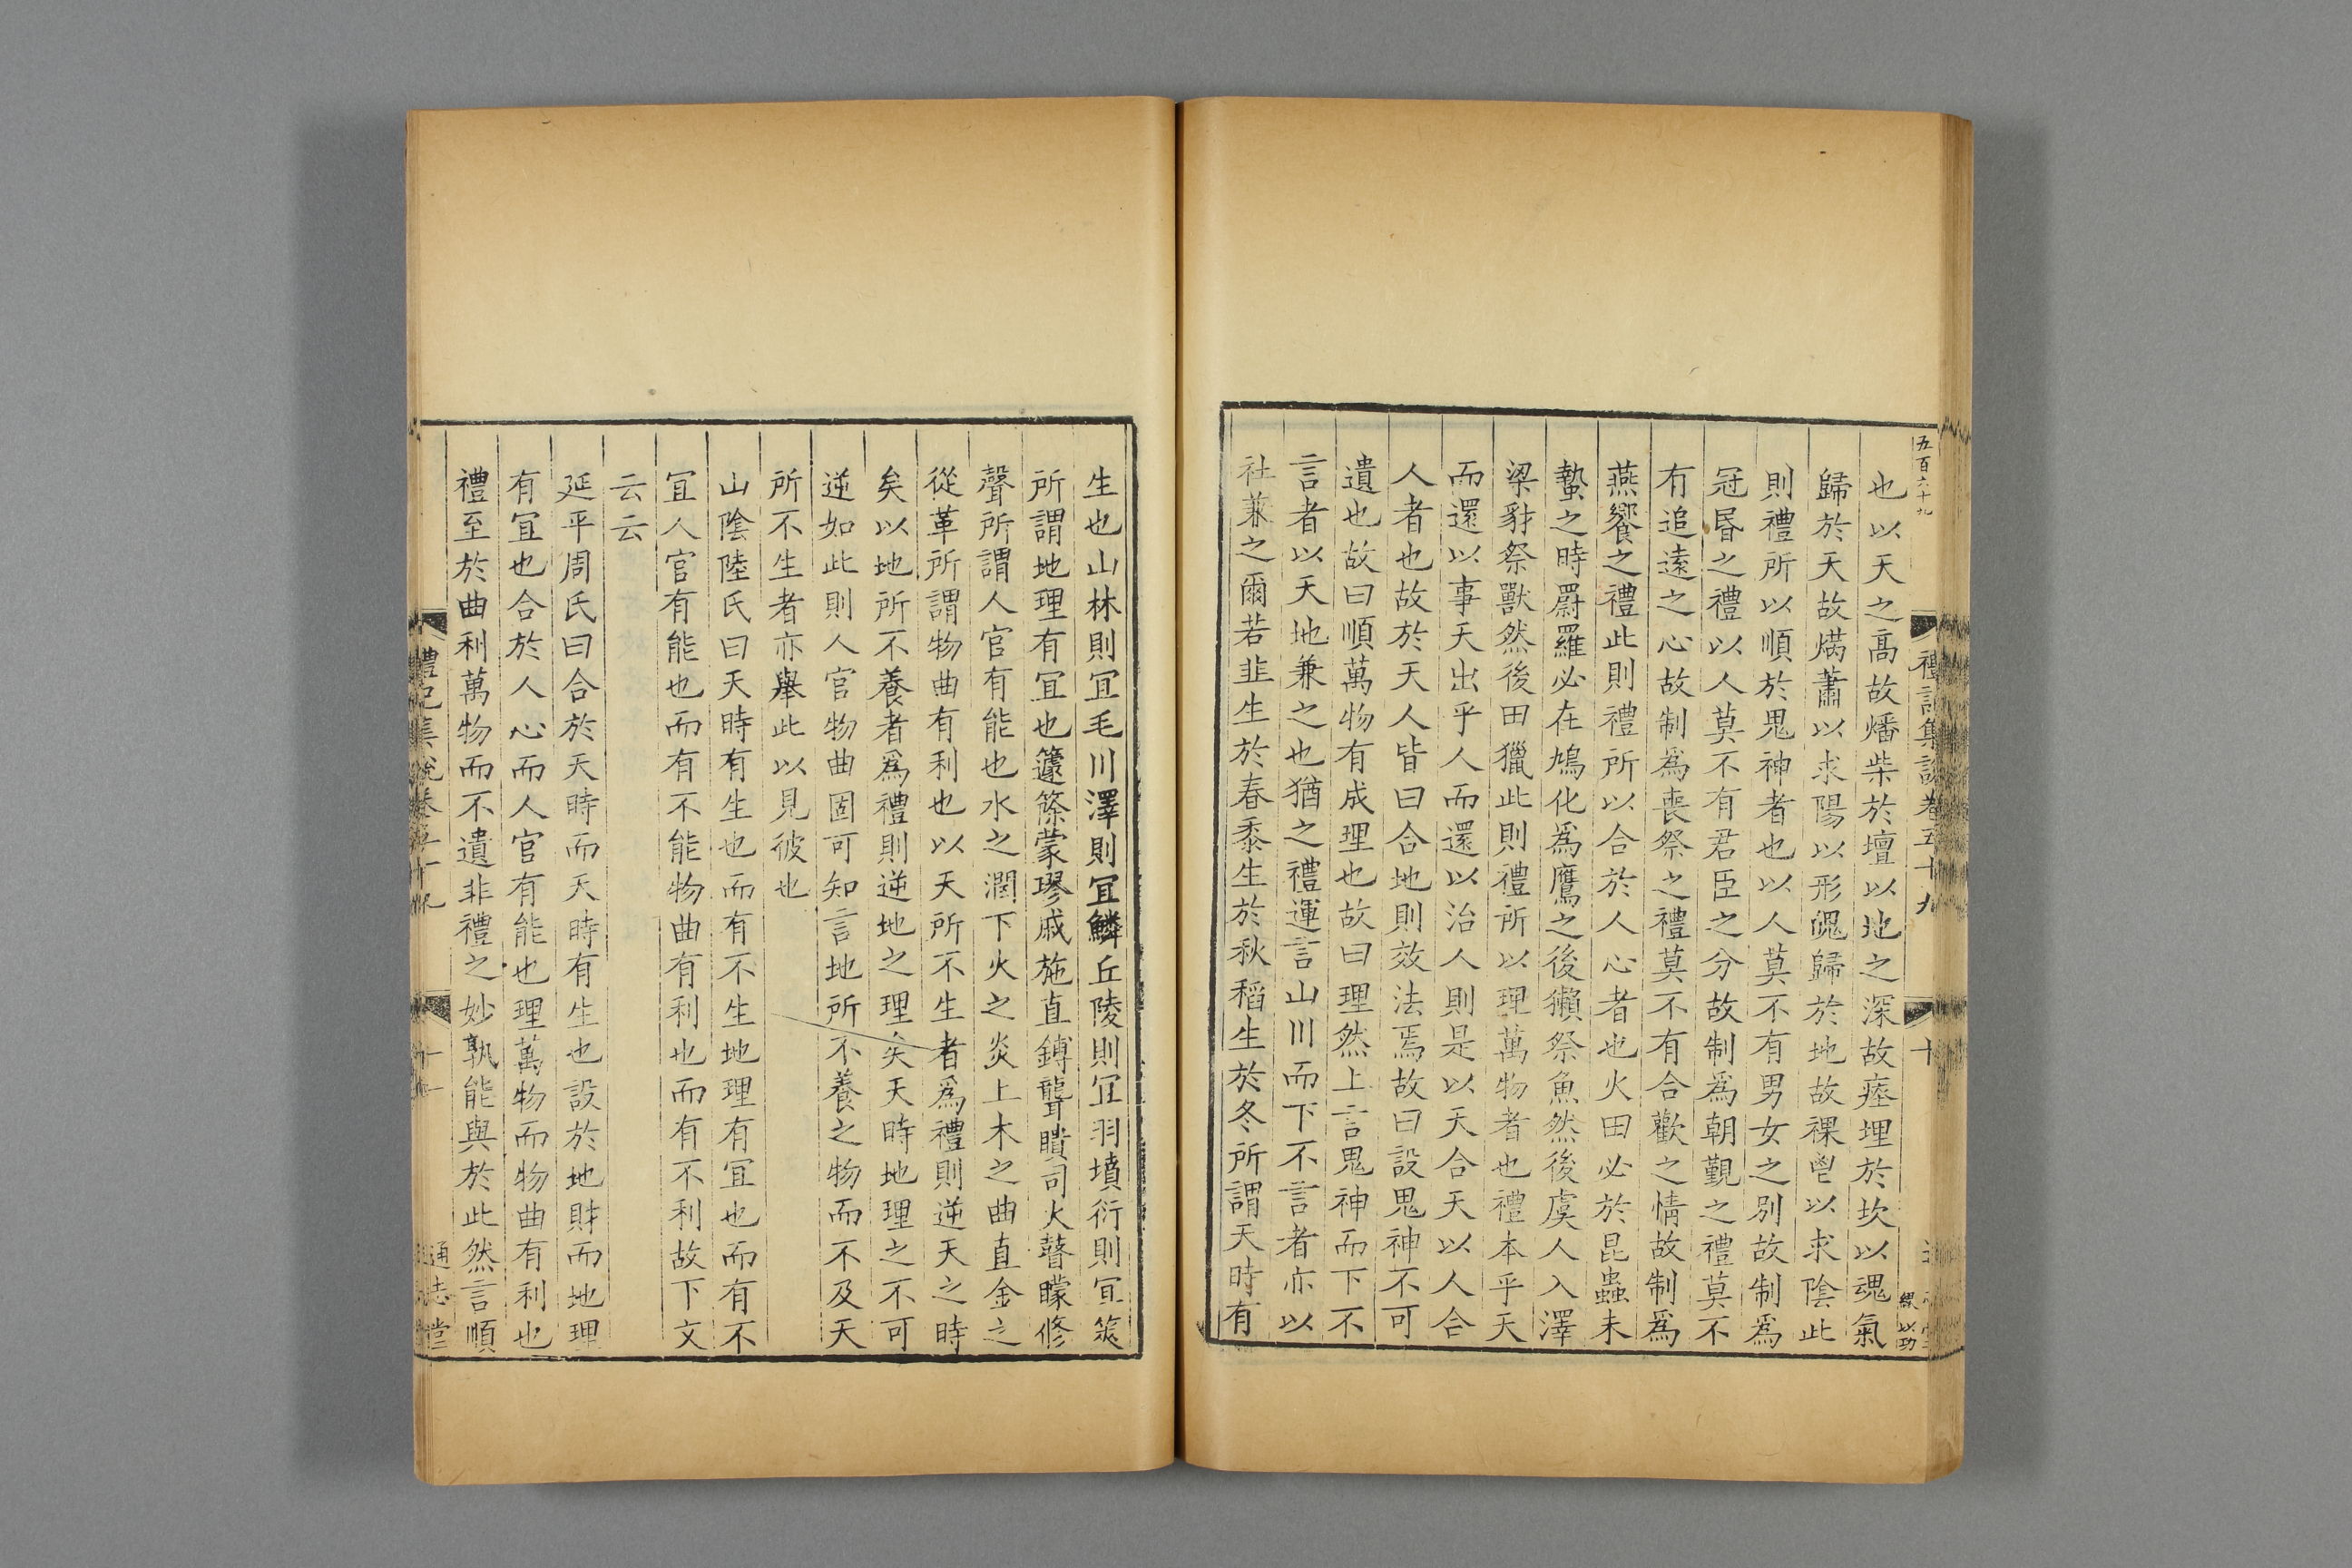 五百六十九
禮記集說卷五十九
十
也以天之高故燔柴於壇以地之深故瘞埋於坎以魂氣
歸於天故焫蕭以求陽以形魄歸於地故祼鬯以求陰此
則禮所以順於鬼神者也以人莫不有男女之別故制爲
冠昬之禮以人莫不有君臣之分故制爲朝覲之禮莫不
有追遠之心故制爲喪祭之禮莫不有合歡之情故制爲
燕饗之禮此則禮所以合於人心者也火田必於昆蟲未
蟄之時罻羅必在鳩化爲鷹之後獺祭魚然後虞人入澤
梁豺祭獸然後田獵此則禮所以理萬物者也禮本乎天
而還以事天出乎人而還以治人則是以天合天以人合
人者也故於天人皆曰合地則效法焉故曰設鬼神不可
遺也故曰順萬物有成理也故曰理然上言鬼神而下不
言者以天地兼之也猶之禮運言山川而下不言者亦以
社兼之爾若韭生於春黍生於秋稻生於冬所謂天時有
生也山林則宜毛川澤則宜鱗丘陵則宜羽墳衍則宜筴
所謂地理有宜也籧篨蒙璆戚施直鎛聾聵司火瞽矇修
聲所謂人官有能也水之潤下火之炎上木之曲直金之
從革所謂物曲有利也以天所不生者爲禮則逆天之時
矣以地所不養者爲禮則逆地之理矣天時地理之不可
逆如此則人官物曲固可知言地所不養之物而不及天
所不生者亦舉此以見彼也
山陰陸氏曰天時有生也而有不生地理有宜也而有不
宜人官有能也而有不能物曲有利也而有不利故下文
云云
延平周氏曰合於天時而天時有生也設於地財而地理
有宜也合於人心而人官有能也理萬物而物曲有利也
禮至於曲利萬物而不遺非禮之妙孰能與於此然言順
禮記集說卷五十九
十一
通志堂